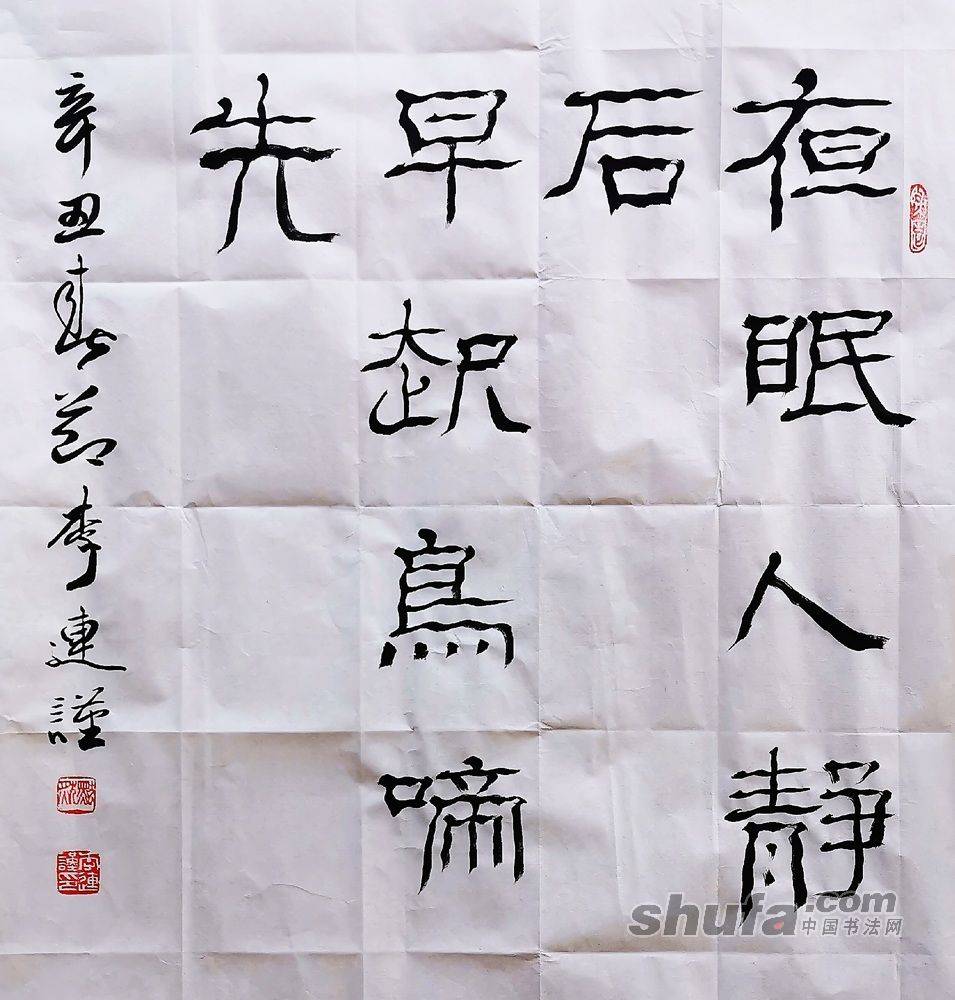 夜眠人静
后
早起鳥啼
先
辛丑春節李連謹
shufa.com
中国书法网